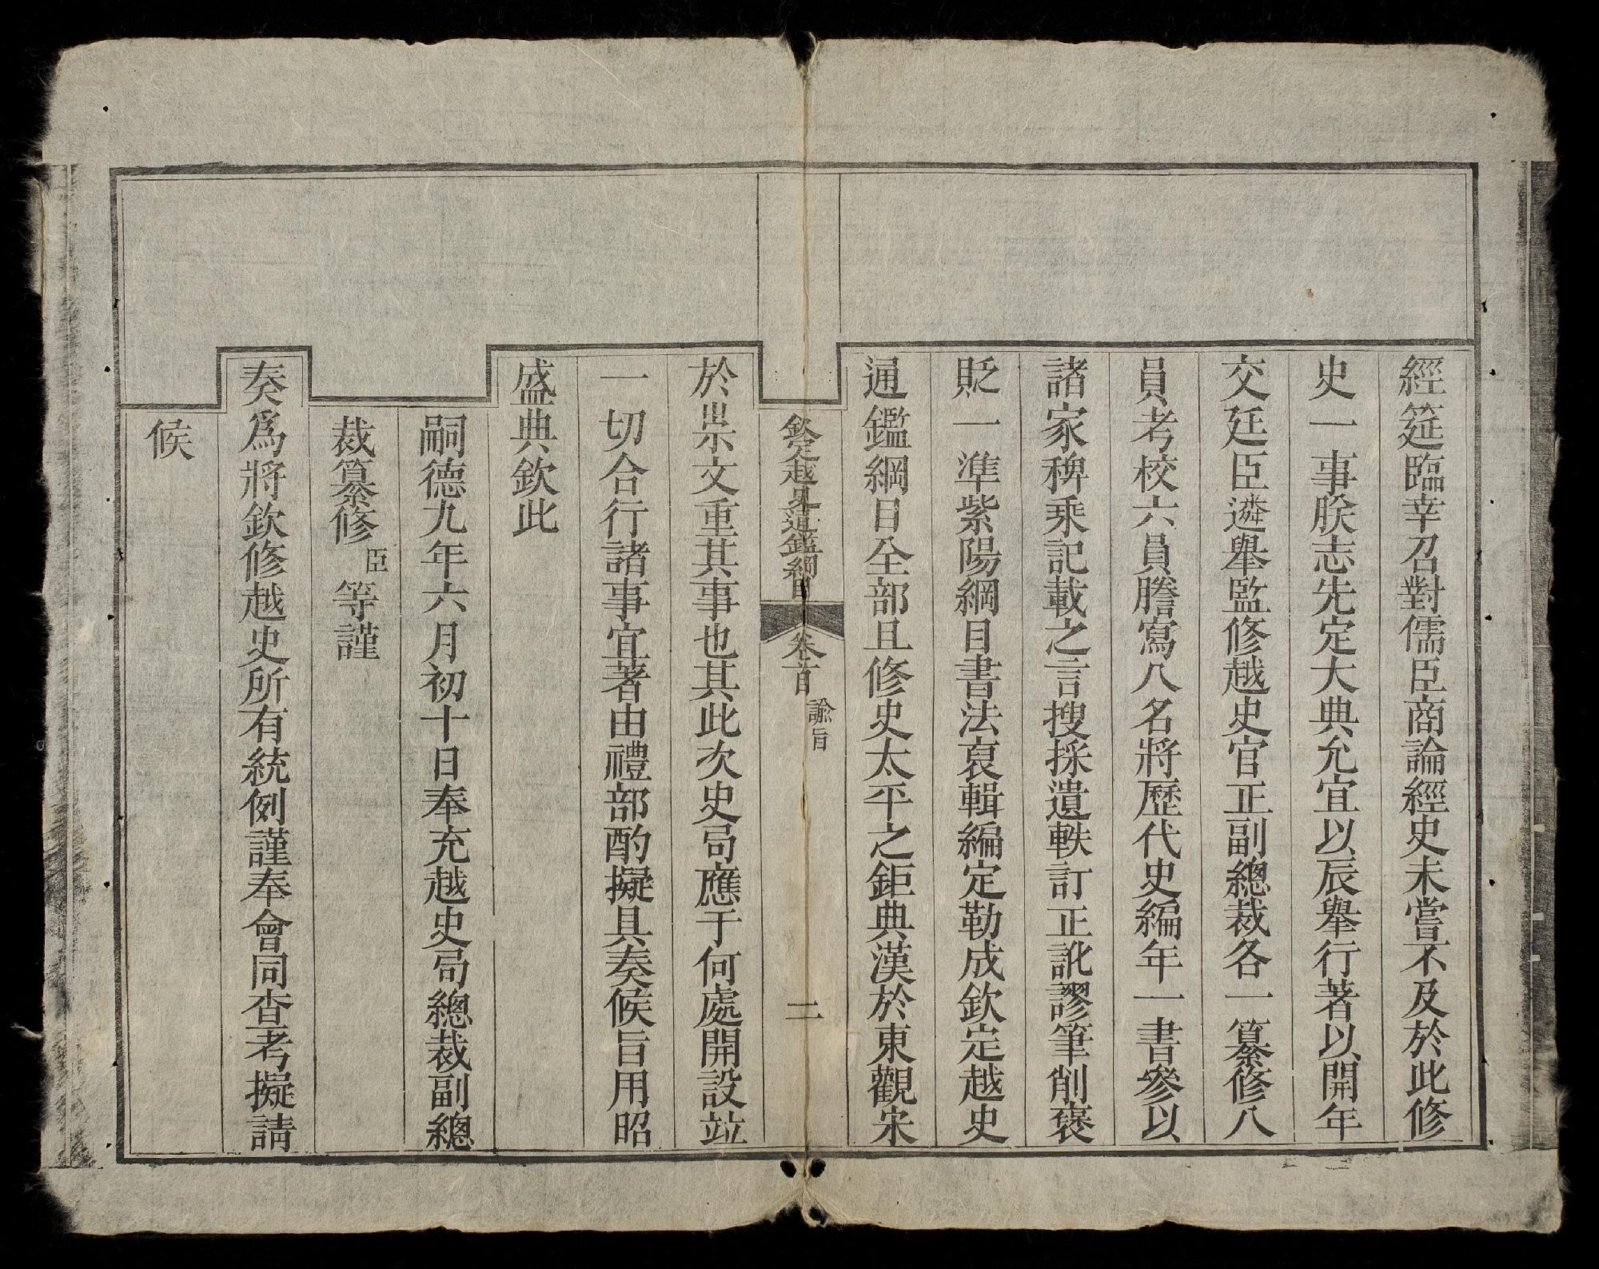 經筵臨幸召對儒臣商論經史未嘗不及於此修
史一事朕志先定大典允宜以辰舉行著以開年
交廷臣遴舉監修越史官正副總裁各一纂修八
員考校六員謄寫八名將歷代史編年一書參以
諸家稗乘記載之言搜採遺軼訂正訛謬筆削褒
貶一準紫陽綱目書法裒輯編定勒成欽定越史
通鑑綱目全部且修史太平之鉅典漢於東觀宋
欽定越史通鑑綱目
卷首
諭旨
二
於崇文重其事也其此次史局應于何處開設竝
一切合行諸事宜著由禮部酌擬具奏候旨用昭
盛典欽此
嗣德九年六月初十日奉充越史局總裁副總
裁纂修臣等謹
奏爲將欽修越史所有統例謹奉會同查考擬請
候